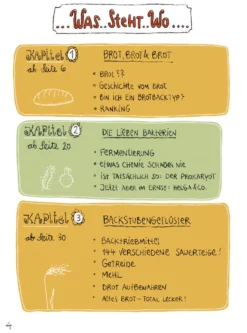 ...Was..Steht..Wo....
Kapitel 1
ab Seite 6
Brot, Brot & Brot
• Brot??
• Geschichte vom Brot
• Bin ich ein Brotbacktyp?
• Ranking
Kapitel 2
ab Seite 20
Die lieben Bakterien
• Fermentierung
• Etwas Chemie schadet nie
• Ist tatsächlich so: Der Procaryot
• Jetzt aber im Ernst: Helga & Co.
Kapitel 3
ab Seite 30
Backstubengeflüster
• Backtriebmittel
• 144 verschiedene Sauerteige!
• Getreide
• Mehl
• Brot aufbewahren
• Altes Brot - total lecker!
4